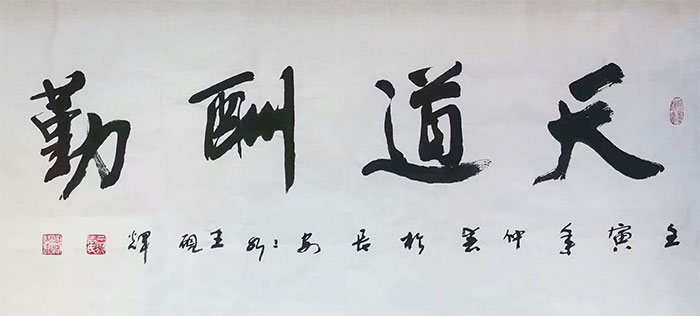 天道酬勤
壬寅年仲春於長安王硯輝